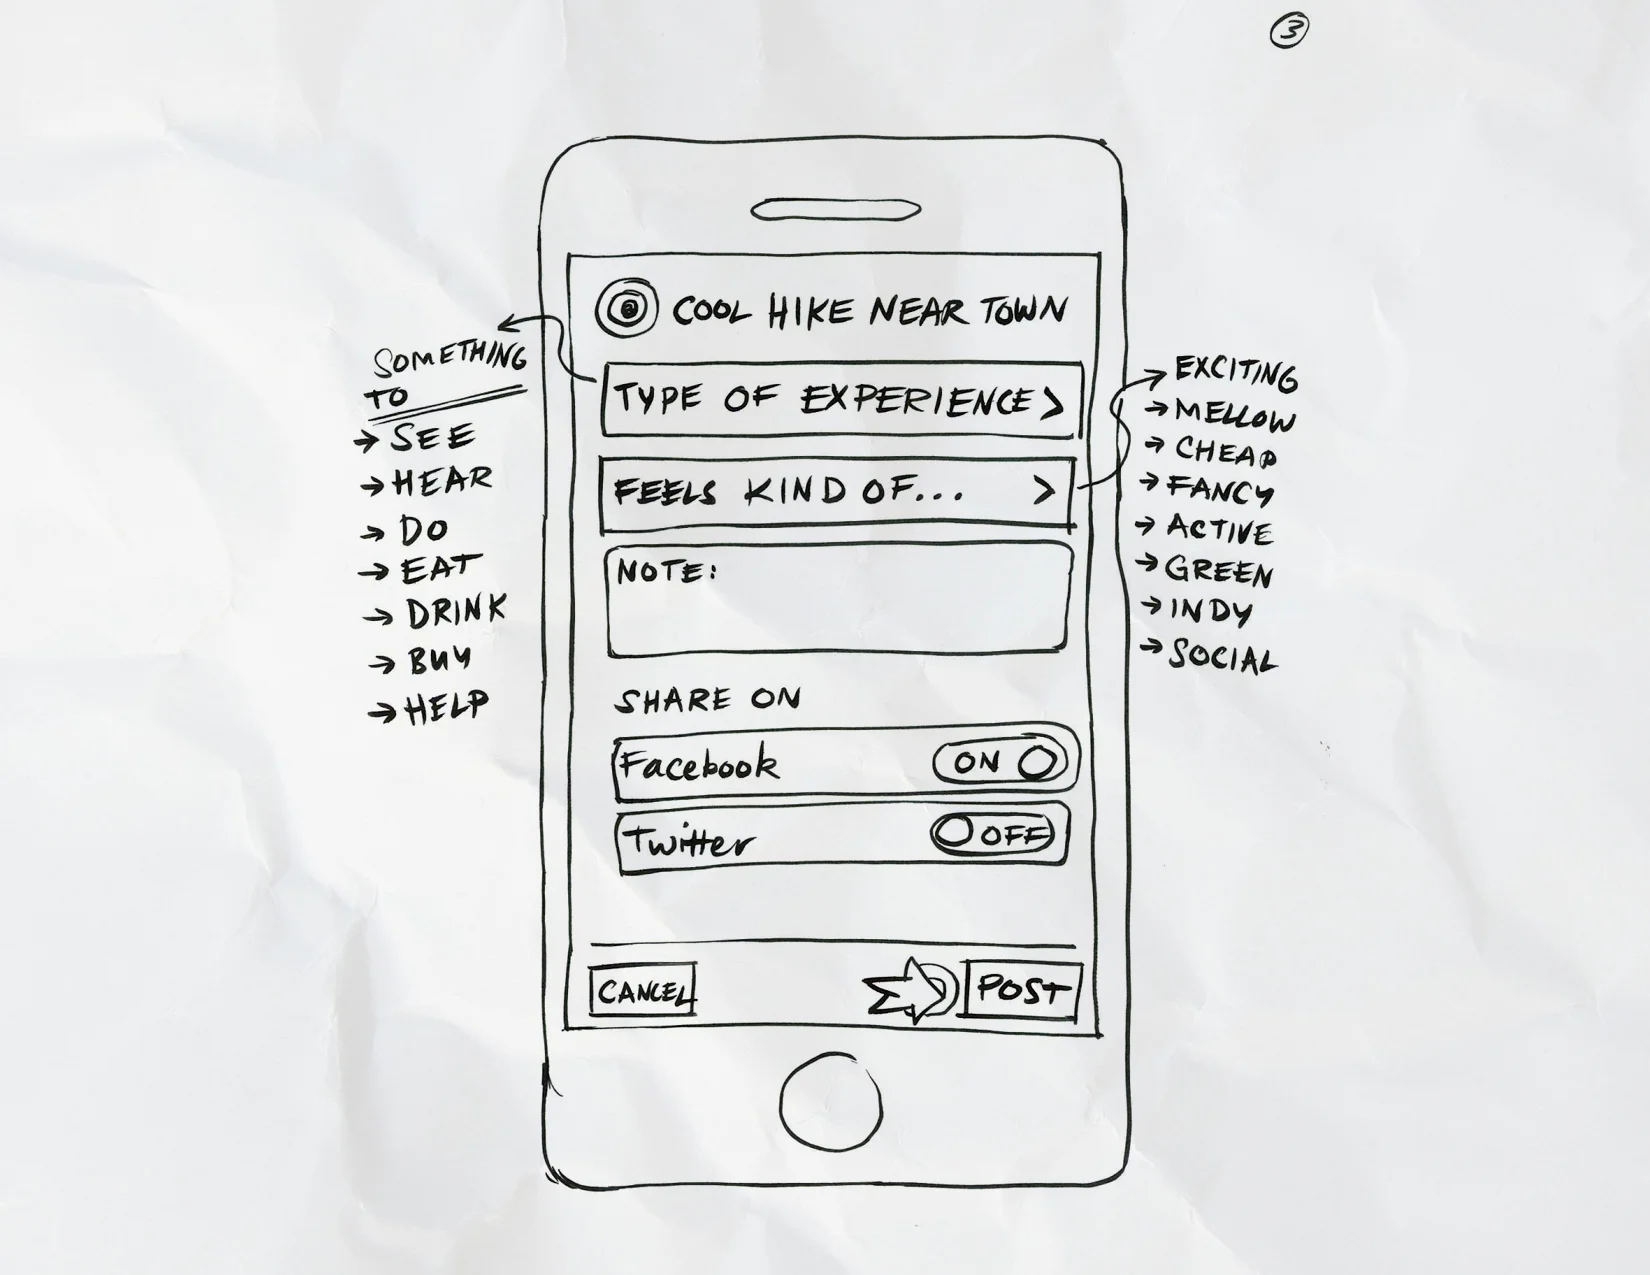 3
COOL HIKE NEAR TOWN
TYPE OF EXPERIENCE >
FEELS KIND OF... >
NOTE:
SHARE ON
Facebook ON
Twitter OFF
CANCEL POST
SOMETHING
TO
→ SEE
→ HEAR
→ DO
→ EAT
→ DRINK
→ BUY
→ HELP
→ EXCITING
→ MELLOW
→ CHEAP
→ FANCY
→ ACTIVE
→ GREEN
→ INDY
→ SOCIAL